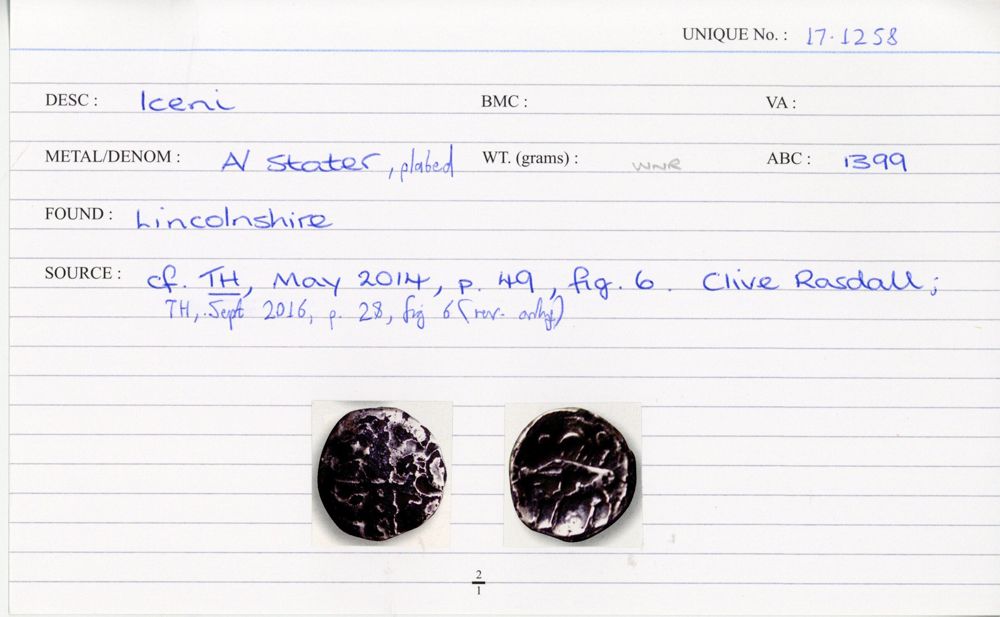 UNIQUE No. : 17.1258
DESC : Iceni BMC : VA :
METAL/DENOM : AV Stater, plated WT. (grams) : WNR ABC : 1399
FOUND : Lincolnshire
SOURCE : cf. TH, May 2014, p. 49, fig. 6. Clive Rasdall;
TH, Sept 2016, p. 28, fig 6 (rev. only)
2
1